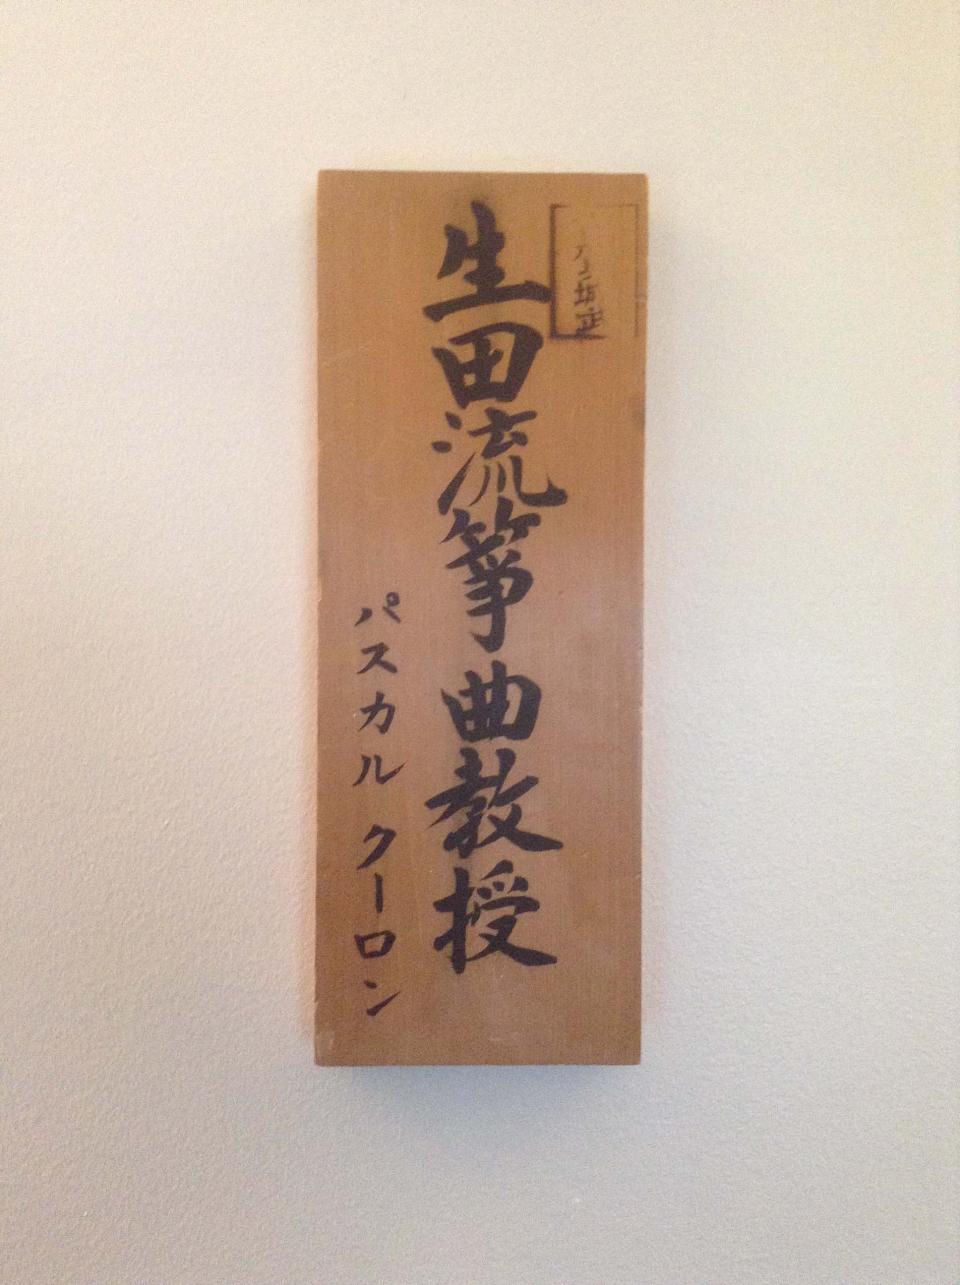 生田流箏曲教授
パスカル クーロン